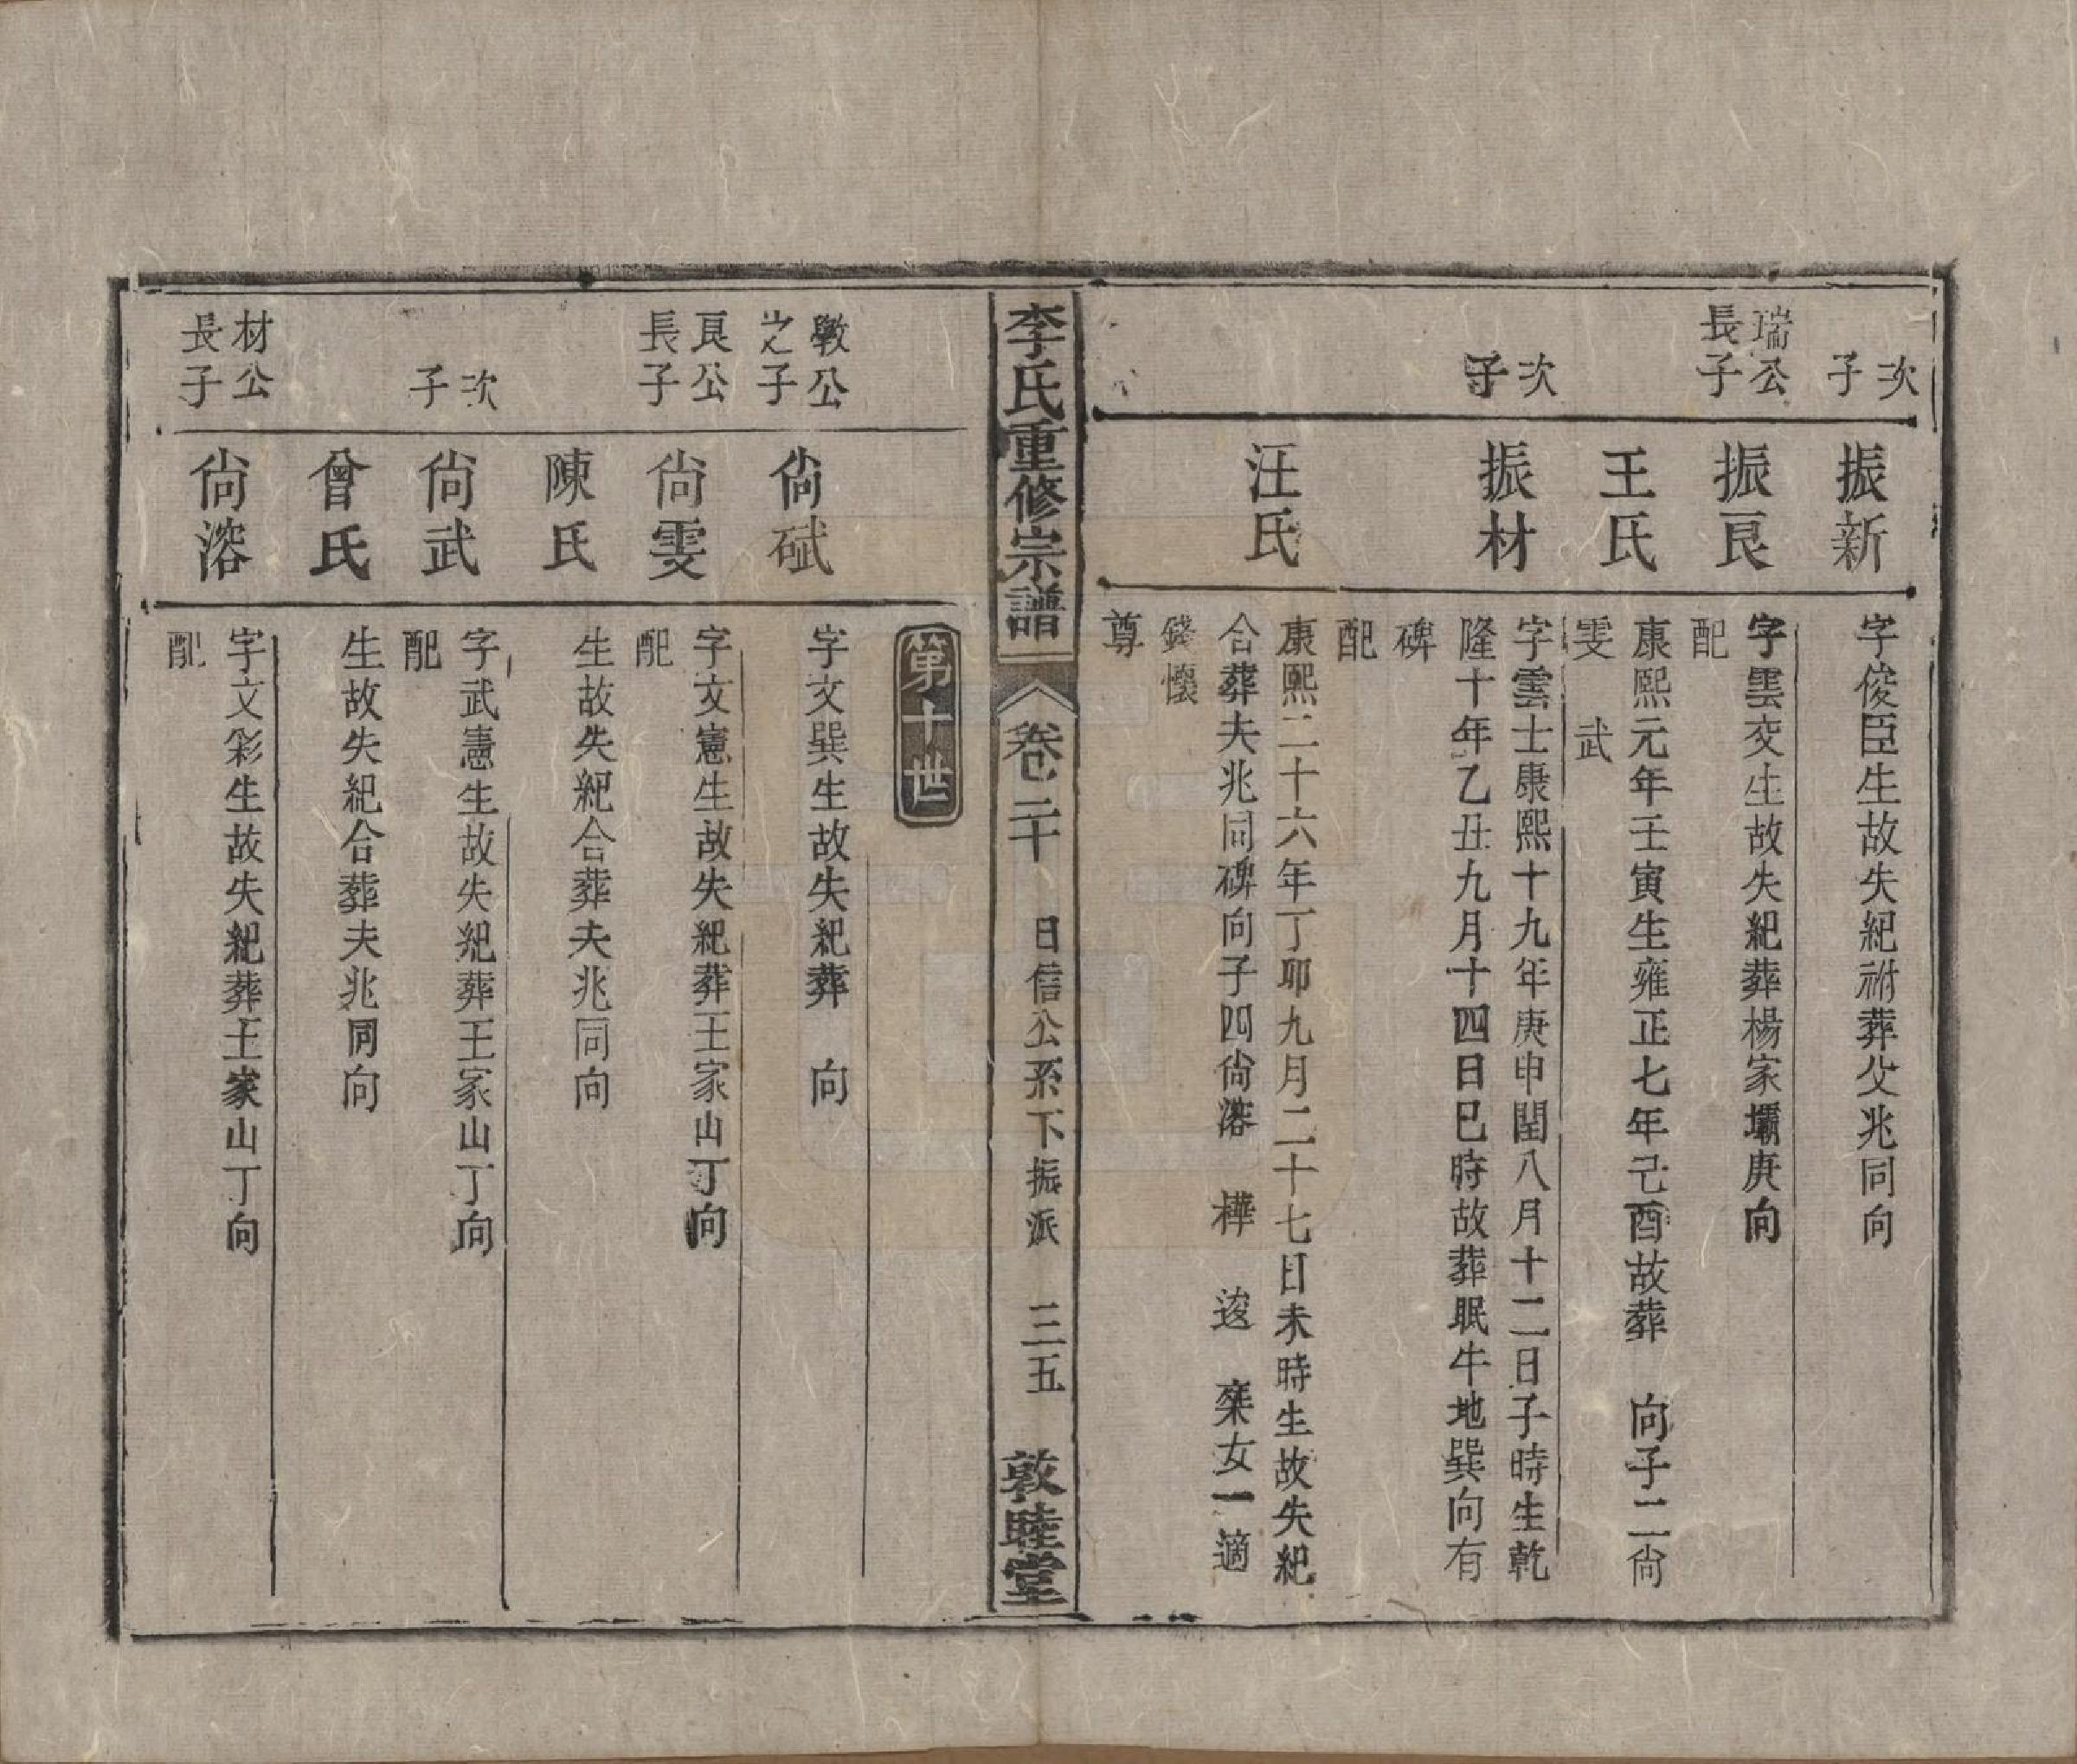 次子
振新
字俊臣生故失紀祔葬父兆同向
瑞公長子
振良
字雲交生故失紀葬楊家壩庚向
配
王氏
康熙元年壬寅生雍正七年己酉故葬　向子二尙
雯　武
次子
振材
字雲士康熙十九年庚申閏八月十二日子時生乾
隆十年乙丑九月十四日巳時故葬眠牛地巽向有
碑
配
汪氏
康熙二十六年丁卯九月二十七日未時生故失紀
合葬夫兆同碑向子四尙溶　樺　逡　桀女一適
錢懷
尊
李氏重修宗譜
卷二十　日信公系下振派　三五　敦睦堂
第十世
斆公之子
尙珷
字文巽生故失紀葬　向
良公長子
尙雯
字文憲生故失紀葬王家山丁向
配
陳氏
生故失紀合葬夫兆同向
次子
尙武
字武憲生故失紀葬王家山丁向
配
曾氏
生故失紀合葬夫兆同向
材公長子
尙溶
字文彩生故失紀葬王家山丁向
配